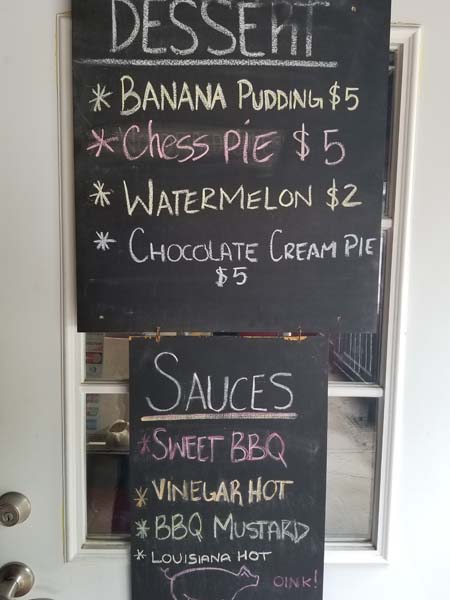 DESSERT
* BANANA PUDDING $5
* Chess PIE $5
* WATERMELON $2
* CHOCOLATE CREAM PIE
$5
SAUCES
* SWEET BBQ
* VINEGAR HOT
* BBQ MUSTARD
* LOUISIANA HOT
OINK!